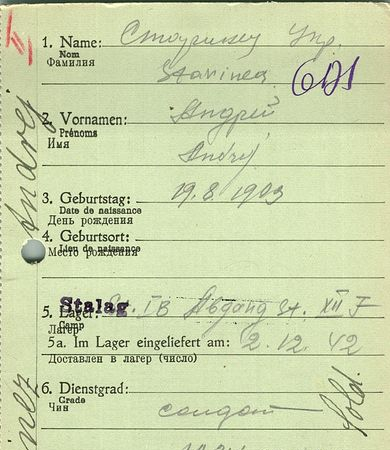 1. Name:
Nom
Фамилия
2. Vornamen:
Prénoms
Имя
Андрей
Andrej
3. Geburtstag: 19.8.1903
Date de naissance
День рождения
4. Geburtsort:
Lieu de naissance
Место рождения
Stalag
5. Lager: IB Abgang St. XII F
Camp
Лагерь
5a. Im Lager eingeliefert am: 2.12.42
Доставлен в лагер (число)
6. Dienstgrad:
Grade
Чин
солдат Sold.
Andrej